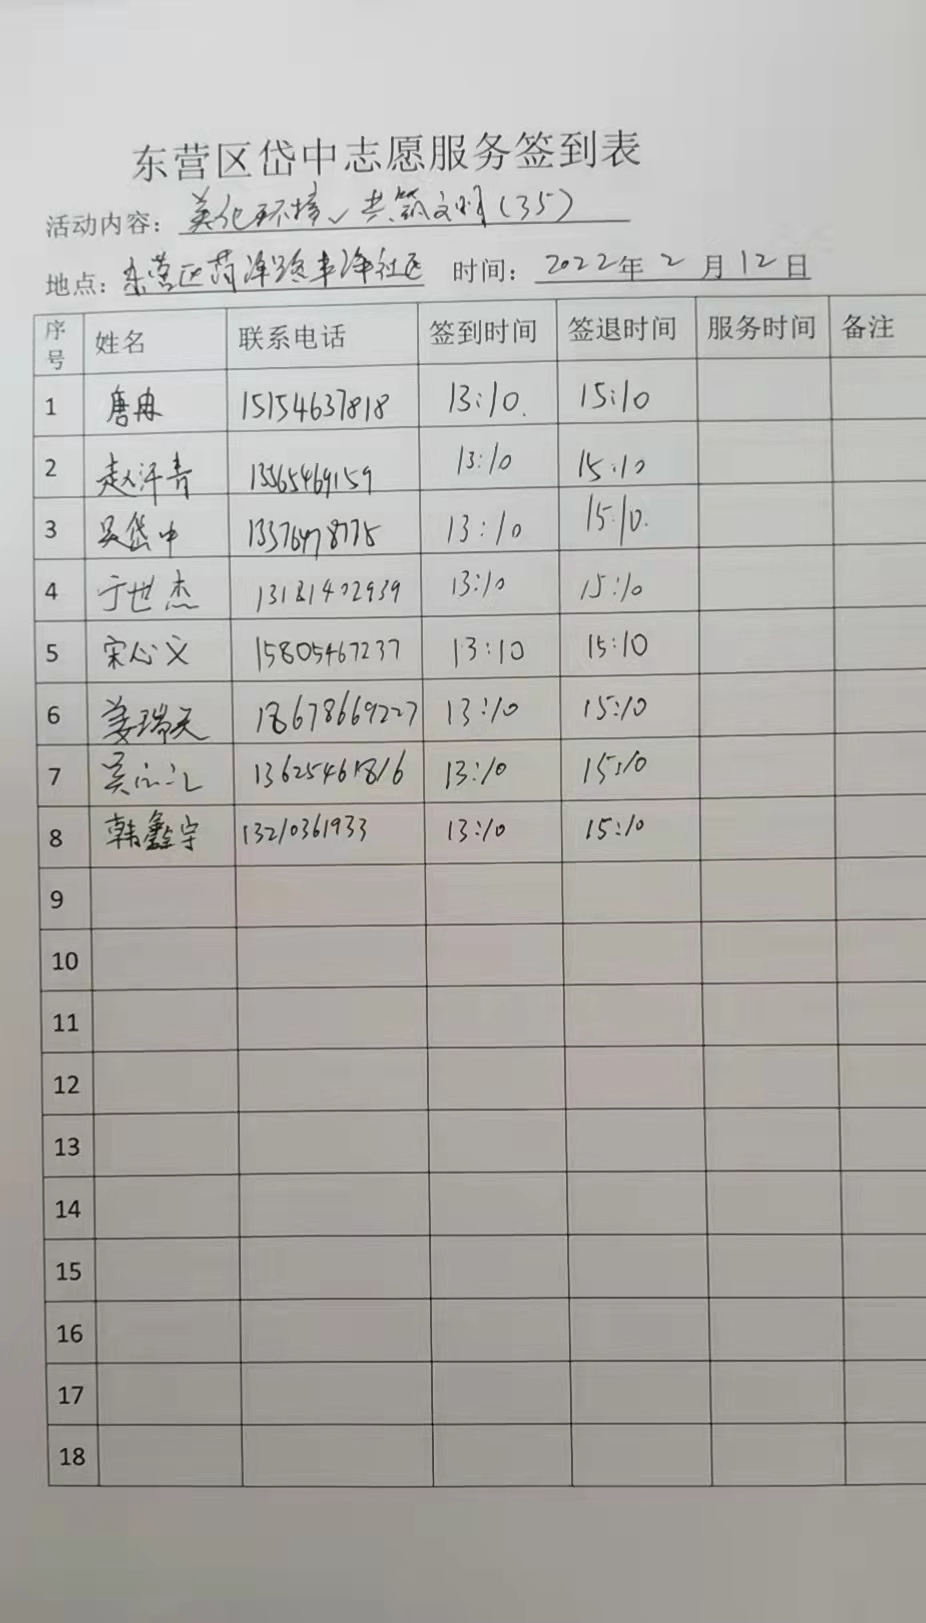 东营区岱中志愿服务签到表
活动内容：美化环境、共筑文明（35）
地点：东营区菏泽路丰泽社区 时间：2022年2月12日
序号 姓名 联系电话 签到时间 签退时间 服务时间 备注
1 唐冉 15154637818 13:10. 15:10
2 赵汗青 13365469159 13:10 15:10
3 吴岱中 13:10 15:10.
4 于世杰 13181402939 13:10 15:10
5 宋心义 15805467237 13:10 15:10
6 姜瑞天 18678669227 13:10 15:10
7 吴 13625461816 13:10 15:10
8 韩鑫宇 13210361933 13:10 15:10
9
10
11
12
13
14
15
16
17
18